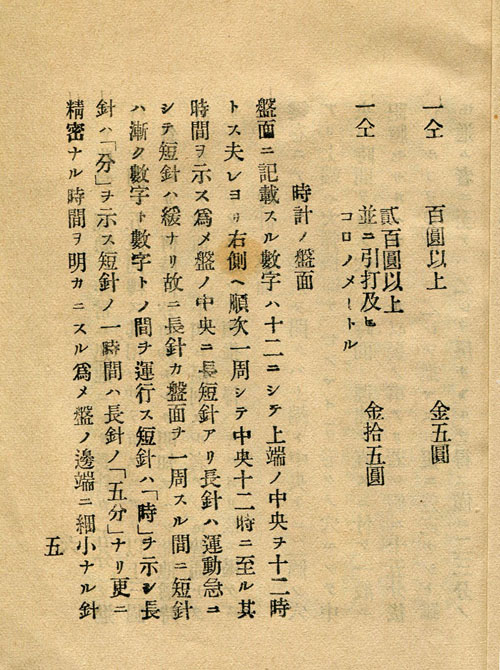 一仝　百圓以上　金五圓
一仝　貳百圓以上
並ニ引打及ヒ　金拾五圓
コロノメートル
時計ノ盤面
盤面ニ記載スル數字ハ十二ニシテ上端ノ中央ヲ十二時
トス夫レヨリ右側ヘ順次一周シテ中央十二時ニ至ル其
時間ヲ示ス爲メ盤ノ中央ニ長短針アリ長針ハ運動急ニ
シテ短針ハ緩ナリ故ニ長針カ盤面ヲ一周スル間ニ短針
ハ漸ク數字ト數字トノ間ヲ運行ス短針ハ「時」ヲ示シ長
針ハ「分」ヲ示ス短針ノ一時間ハ長針ノ「五分」ナリ更ニ
精密ナル時間ヲ明カニスル爲メ盤ノ邊端ニ細小ナル針
五